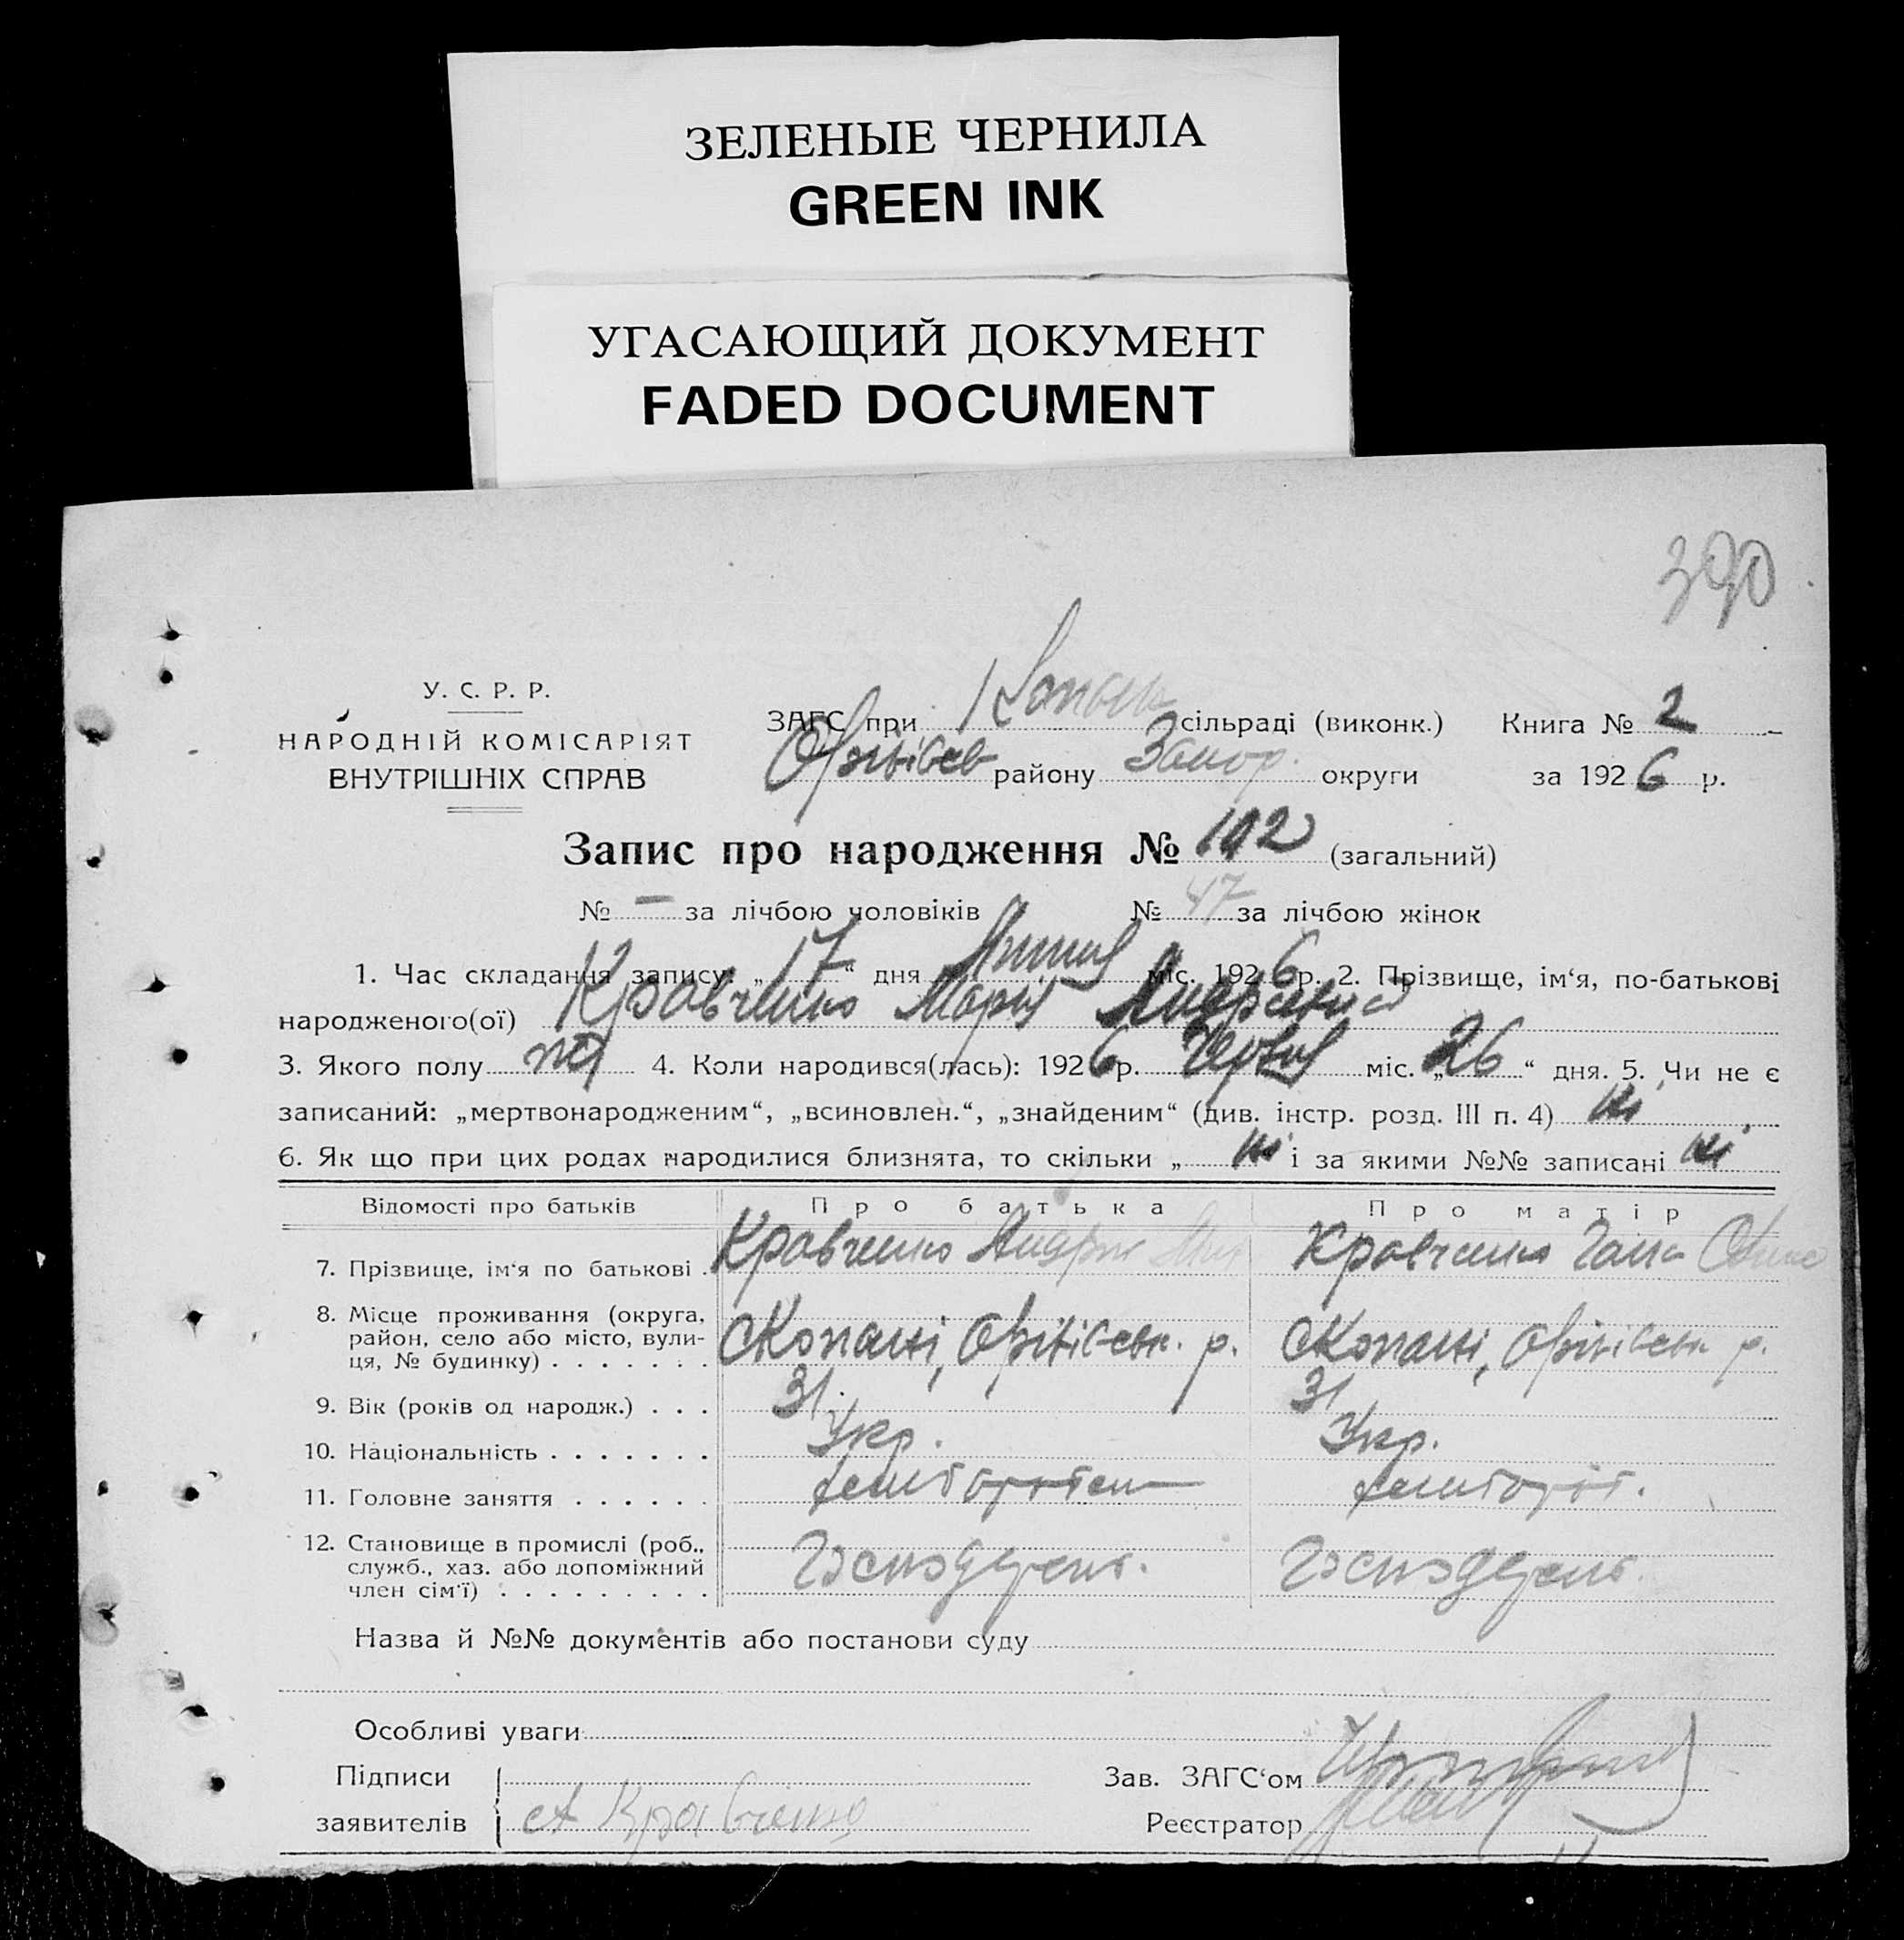 ЗЕЛЕНЫЕ ЧЕРНИЛА
GREEN INK
УГАСАЮЩИЙ ДОКУМЕНТ
FADED DOCUMENT
390
У. С. Р. Р.
НАРОДНІЙ КОМІСАРІЯТ
ВНУТРІШНІХ СПРАВ
ЗАГС при Копань сільраді (виконк.) Книга № 2
району Запор. округи за 1926 р.
Запис про народження № 102 (загальний)
№ — за лічбою чоловіків № 47 за лічбою жінок
1. Час складання запису „17“ дня Липня міс. 1926 р. 2. Прізвище, ім‘я, по-батькові
народженого(ої) Кравченко Марія
3. Якого полу 4. Коли народився(лась): 1926 р. Червня міс. „26“ дня. 5. Чи не є
записаний: „мертвонародженим“, „всиновлен.“, „знайденим“ (див. інстр. розд. III п. 4) ні
6. Як що при цих родах народилися близнята, то скільки „ ні і за якими №№ записані ні
Відомості про батьків Про батька Про матір
7. Прізвище, ім‘я по батькові Кравченко Андрій Кравченко Гана
8. Місце проживання (округа, район, село або місто, вулиця, № будинку) с Копані, Оріхівськ. р. с Копані, р.
9. Вік (років од народж.) 31 31
10. Національність Укр. Укр.
11. Головне заняття
12. Становище в промислі (роб., служб., хаз. або допоміжний член сім‘ї)
Назва й №№ документів або постанови суду
Особливі уваги
Підписи Зав. ЗАГС‘ом
заявителів А Кравченко Реєстратор